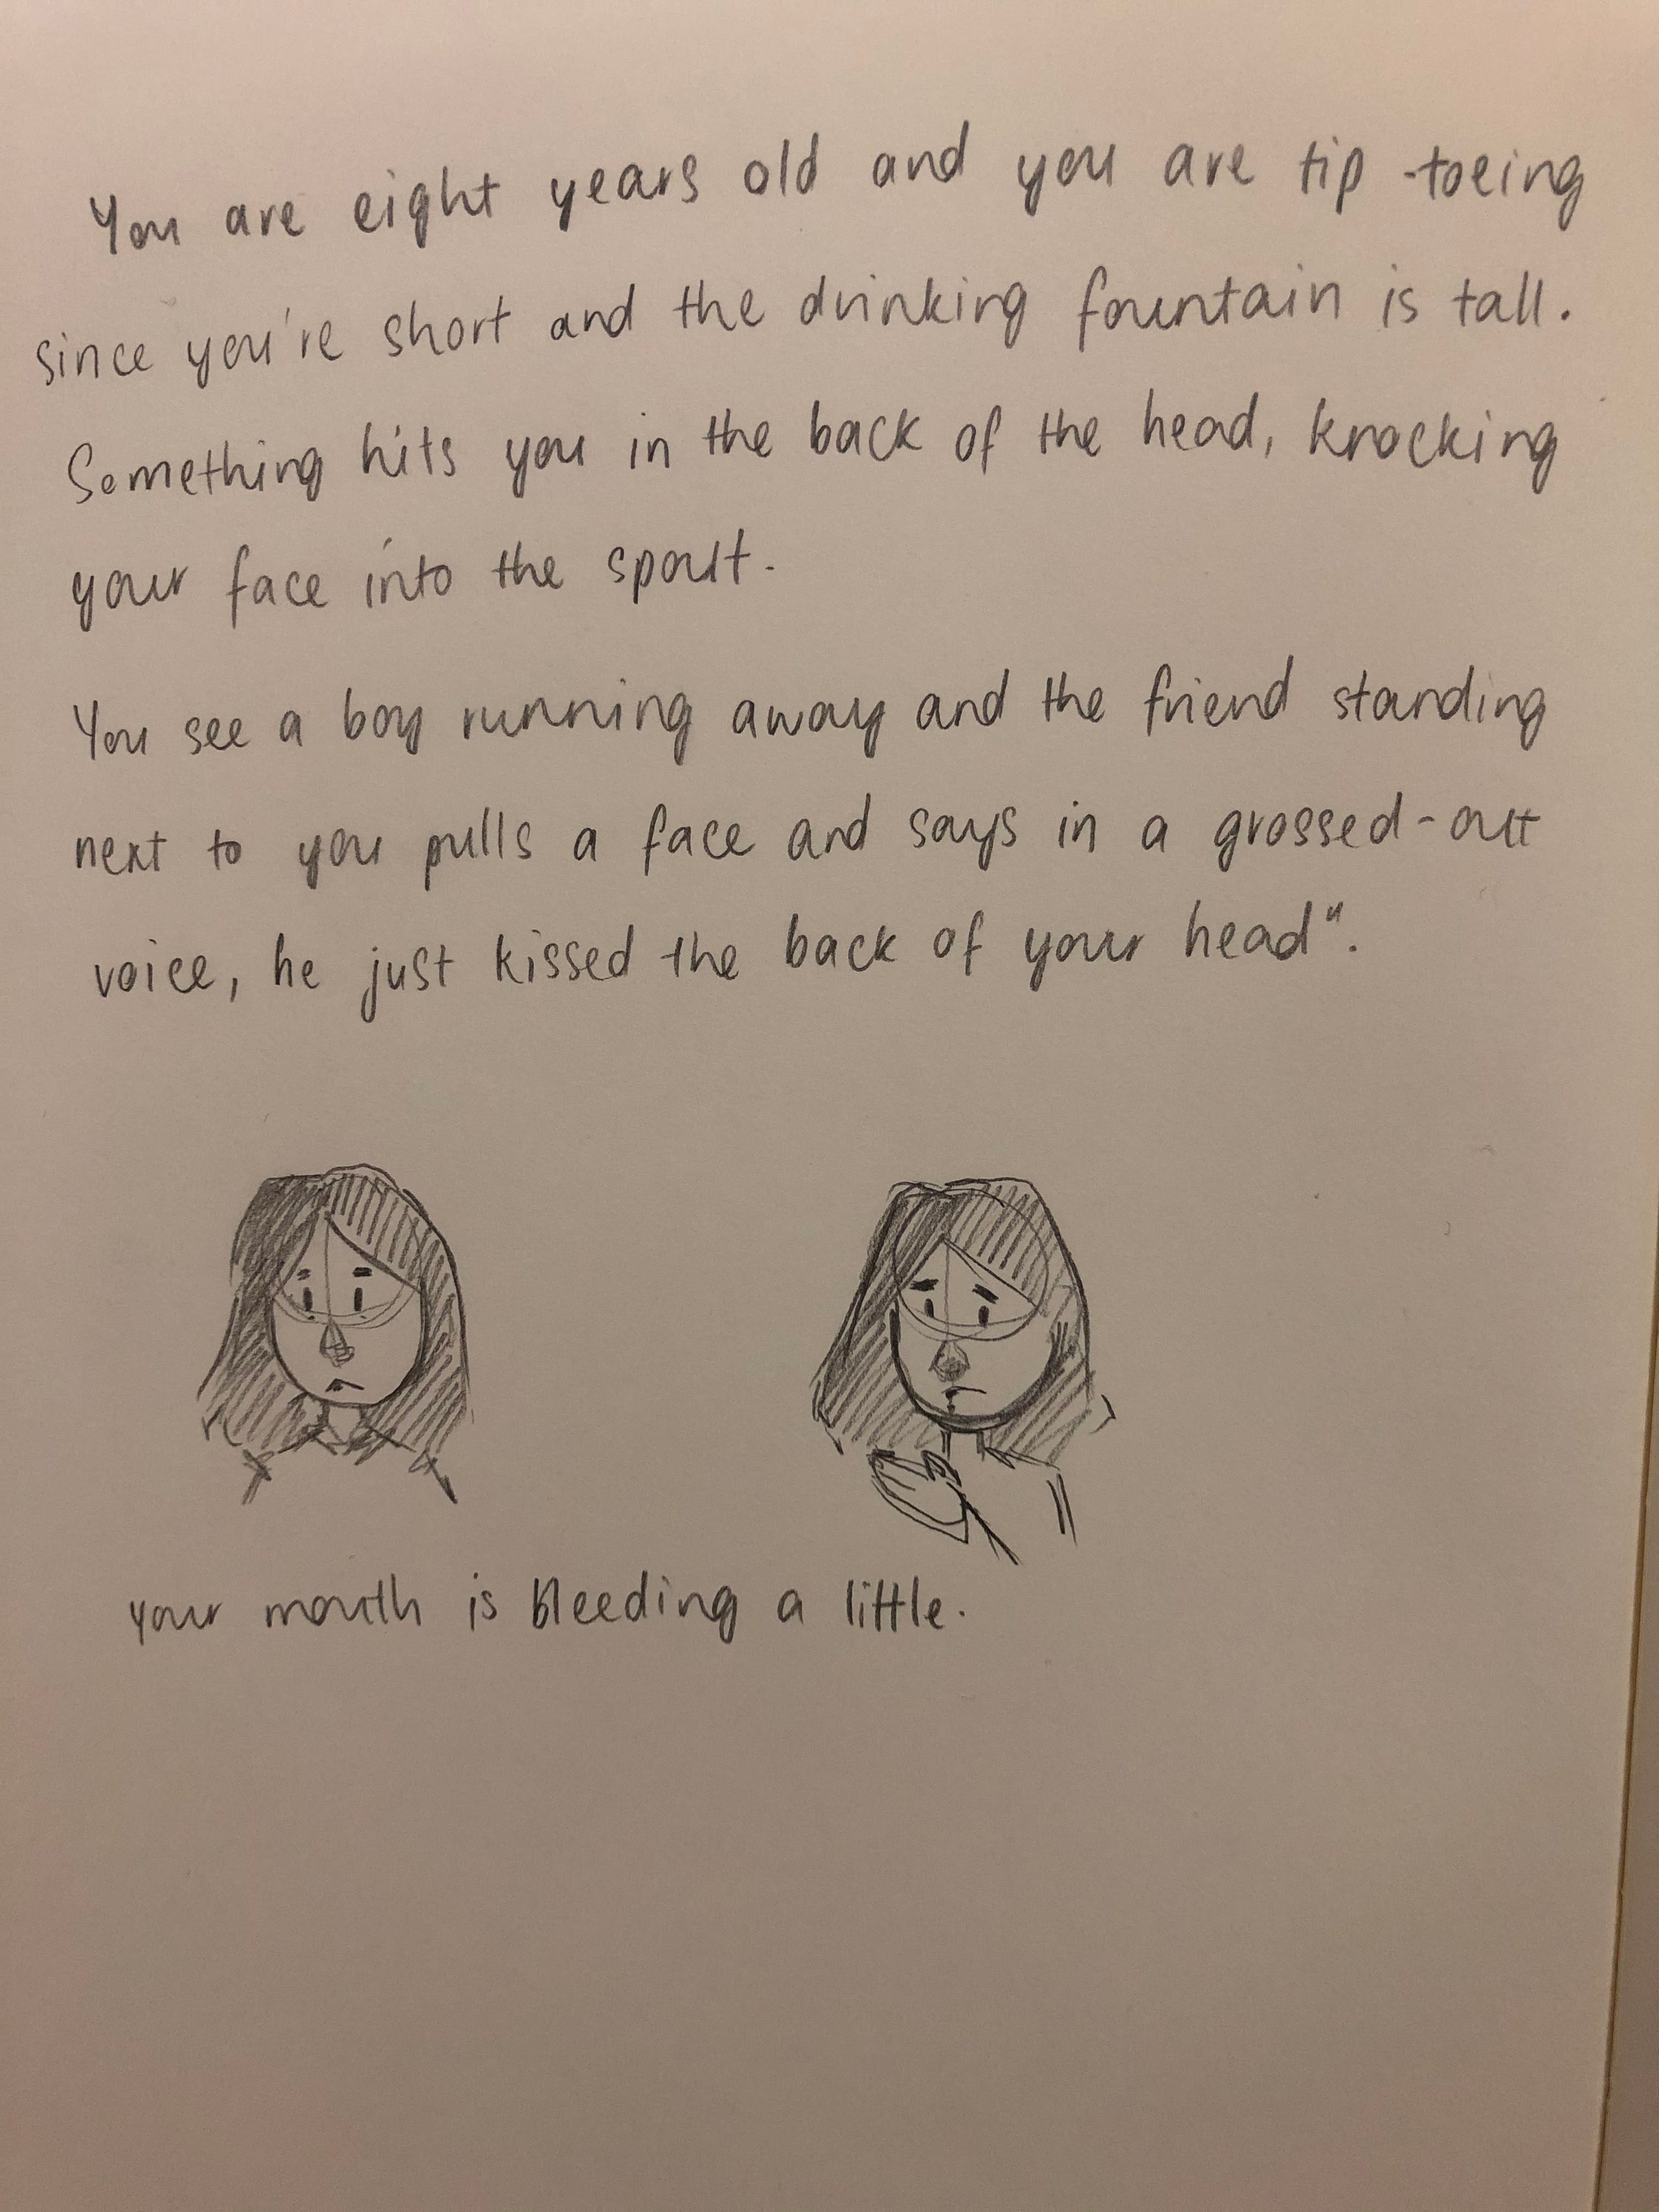 You are eight years old and you are tip-toeing
since you're short and the drinking fountain is tall.
Something hits you in the back of the head, knocking
your face into the spout.
You see a boy running away and the friend standing
next to you pulls a face and says in a grossed-out
voice, he just kissed the back of your head".
your mouth is bleeding a little.